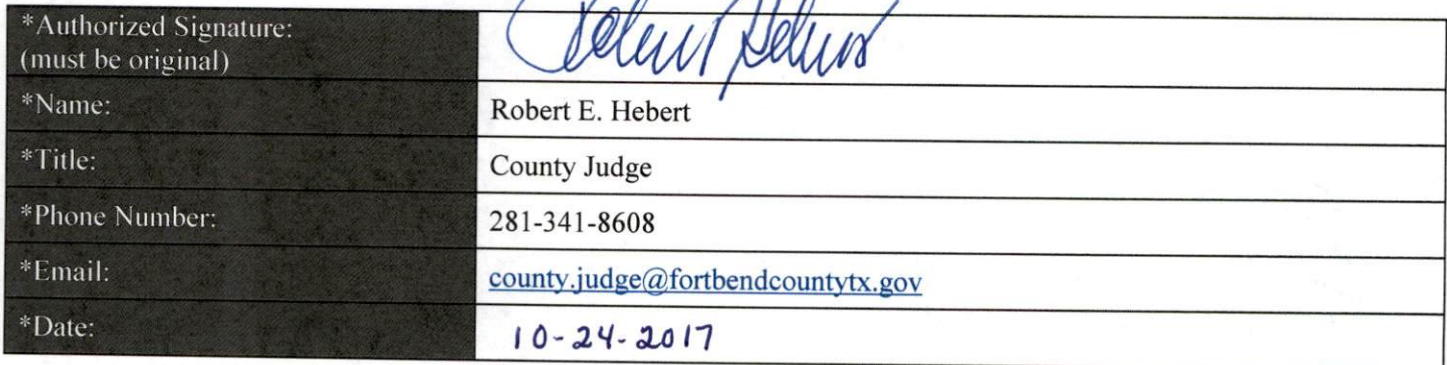 *Authorized Signature:
(must be original)
*Name: Robert E. Hebert
*Title: County Judge
*Phone Number: 281-341-8608
*Email: county.judge@fortbendcountytx.gov
*Date: 10-24-2017